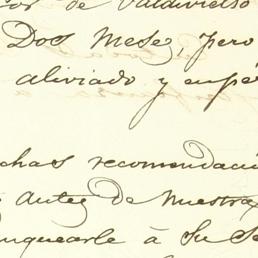 de Valdivielso
Dos Meses, pero
aliviado y empe
chas recomendaci
antes de Nuestra
nquearle á Su Se